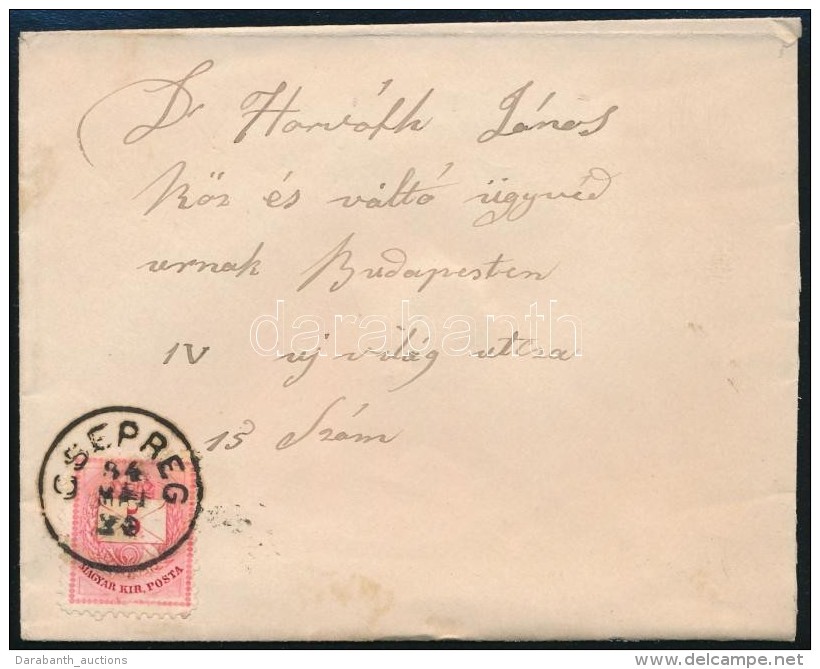 Dr Horváth János
Köz és váltó ügyvéd
urnak Budapesten
darabanth
IV uj világ utcza
15 Szám
CSEPREG
84
MAGYAR KIR. POSTA
Darabanth_auctions
posta.delcampe.net